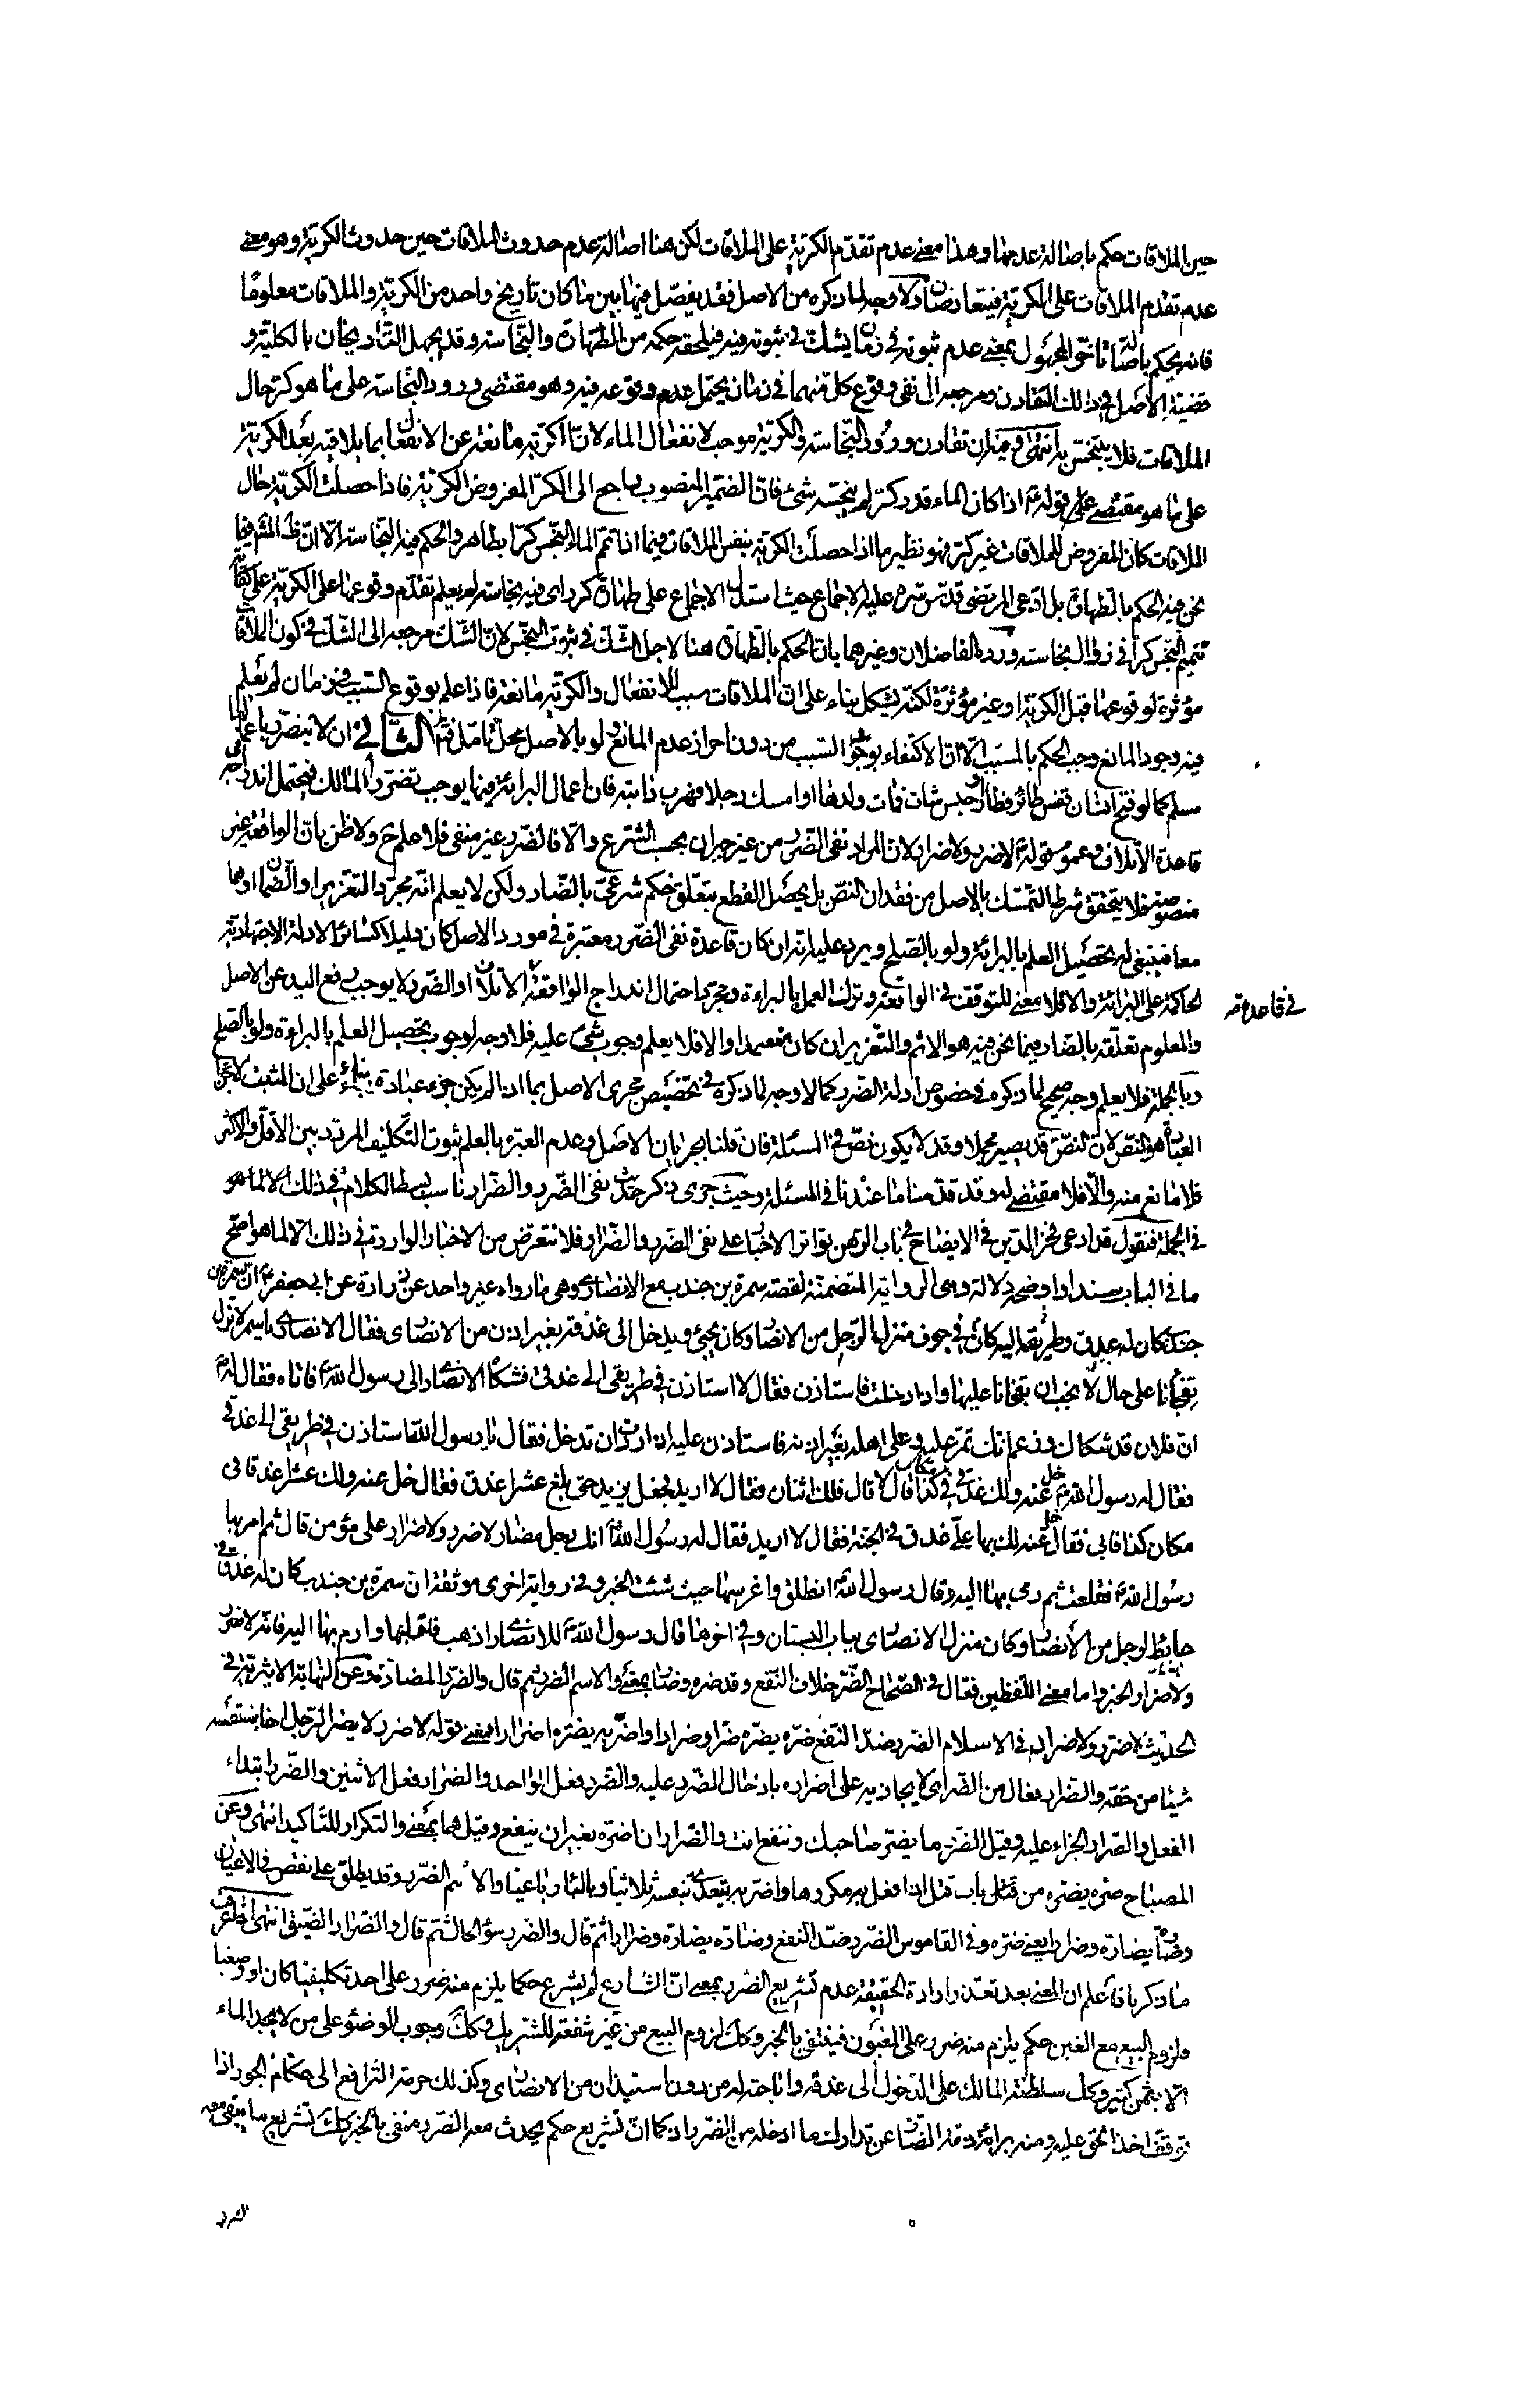 حين الملاقات حكم باصالة عدمها وهذا معنى عدم تقدم الكرية على الملاقات لكن هنا اصالة عدم حدوث الملاقات حين حدوث الكرية وهو معنى
عدم تقدم الملاقات على الكرية فيتعارضان ولا وجه لما ذكره من الاصل فقد يفصل فيها بين ما كان تاريخ واحد من الكرية والملاقات معلوما
فانه يحكم باصالة تاخر المجهول بمعنى عدم ثبوته في زمان يشك في ثبوته فيه فيلحقه حكمه من الطهارة والنجاسة وقد يجهل التاريخان بالكلية و
قضية الاصل في ذلك التقارن ومرجعه الى نفى وقوع كل منهما في زمان يحتمل عدم وقوعه فيه وهو مقتضى ورود النجاسة على ما هو كر حال
الملاقات فلا يتنجس به انتهى وفيه ان تقارن ورود النجاسة والكرية موجب لانفعال الماء لان الكرية مانعة عن الانفعال بما يلاقيه بعد الكرية
على ما هو مقتضى قوله ع اذا كان الماء قدر كر لم ينجسه شئ فان الضمير المنصوب راجع الى الكر المفروض الكرية فاذا حصلت الكرية حال
الملاقات كان المفروض للملاقات غير كر فهو نظير ما اذا حصلت الكرية بنفس الملاقات فيما اذا تمم الماء النجس كرا بطاهر والحكم فيه النجاسة الا ان ظ المشهور فيما
نحن فيه الحكم بالطهارة بل ادعى المرتضى قدس سره عليه الاجماع حيث استدل بالاجماع على طهارة كر راى فيه نجاسة لم يعلم تقدم وقوعها على الكرية على كفاية
تتميم النجس كرا في زوال نجاسته ورده الفاضلان وغيرهما بان الحكم بالطهارة هنا لاجل الشك في ثبوت التنجس لان الشك مرجعه الى الشك في كون الملاقات
مؤثرة لوقوعها قبل الكرية او غير مؤثرة لكنه يشكل بناء على ان الملاقات سبب للانفعال والكرية مانعة فاذا علم بوقوع السبب في زمان لم يعلم
فيه وجود المانع وجب الحكم بالمسبب الا ان الاكتفاء بوجود السبب من دون احراز عدم المانع ولو بالاصل محل تامل فتامل الثاني ان لا يتضرر باعمالها
مسلم كما لو فتح انسان قفص طائر فطار او حبس شاة فمات ولدها او امسك رجلا فهرب دابته فان اعمال البرائة فيها يوجب تضرر المالك فيحتمل اندراجه في
قاعدة الاتلاف وعموم قوله ع لا ضرر ولا ضرار لان المراد نفى الضرر من غير جبران بحسب الشرع والا فالضرر غير منفى فلا علم ح ولا ظن بان الواقعة غير
منصوصة فلا يتحقق شرط التمسك بالاصل من فقدان النص بل يحصل القطع بتعلق حكم شرعي بالضار ولكن لا يعلم انه مجرد التعزير او الضمان او هما
معا فينبغي له تحصيل العلم بالبرائة ولو بالصلح ويرد عليه انه ان كان قاعدة نفى الضرر معتبرة في مورد الاصل كان دليلا كسائر الادلة الاجتهادية
الحاكمة على البرائة والا فلا معنى للتوقف في الواقعة وترك العمل بالبراءة ومجرد احتمال اندراج الواقعة في الاتلاف او الضرر لا يوجب رفع اليد عن الاصل
في قاعدة ضر
والمعلوم تعلقه بالضار فيما نحن فيه هو الاثم والتعزير ان كان متعمدا والا فلا يعلم وجوب شئ عليه فلا وجه لوجوب تحصيل العلم بالبراءة ولو بالصلح
وبالجملة فلا يعلم وجه صحيح لما ذكره في خصوص ادلة الضرر كما لا وجه لما ذكره في تخصيص مجرى الاصل بما اذا لم يكن جزء عبادة بناء على ان المثبت لاجزاء
العبادة هو النص لان النص قد يصير مجملا وقد لا يكون نص في المسئلة فان قلنا بجريان الاصل وعدم العبرة بالعلم بثبوت التكليف المردد بين الاقل والاكثر
فلا مانع منه والا فلا مقتضى له وقد قدمنا ما عندنا في المسئلة وحيث جرى ذكر حديث نفى الضرر والضرار ناسب بسط الكلام في ذلك
في الجملة فنقول قد ادعى فخر الدين في الايضاح في باب الرهن تواتر الاخبار على نفى الضرر والضرار فلا نتعرض من الاخبار الواردة في ذلك الا لما هو اصح
ما في الباب سندا واوضحه دلالة وهى الرواية المتضمنة لقصة سمرة بن جندب مع الانصارى وهى ما رواه غير واحد عن زرارة عن ابى جعفر ع ان سمرة بن
جندب كان له عذق وطريقه اليه كان في جوف منزل الرجل من الانصار وكان يجئ ويدخل الى عذقه بغير اذن من الانصارى فقال الانصارى يا سمرة لا تزال
تفجأنا على حال لا نحب ان تفجأنا عليها واذا دخلت فاستاذن فقال لا استاذن في طريقى الى عذقى فشكاه الانصارى الى رسول الله ص فاتاه فقال له
ان فلان قد شكاك وزعم انك تمر عليه وعلى اهله بغير اذنه فاستاذن عليه اذا اردت ان تدخل فقال يا رسول الله استاذن في طريقى الى عذقى
فقال له رسول الله ص خل عنه ولك عذق في مكان كذا قال لا قال فلك اثنان فقال لا اريد فجعل يزيد حتى بلغ عشر اعذق فقال خل عنه ولك عشر اعذق في
مكان كذا فابى فقال خل عنه ولك بها عذق في الجنة فقال لا اريد فقال له رسول الله ص انك رجل مضار لا ضرر ولا ضرار على مؤمن قال ثم امر بها
رسول الله ص فقلعت ثم رمى بها اليه وقال رسول الله ص انطلق واغرسها حيث شئت الخبر وفى رواية اخرى موثقة ان سمرة بن جندب كان له عذق في
حائط لرجل من الانصار وكان منزل الانصارى بباب البستان وفى اخرها قال رسول الله ص للانصارى اذهب فاقلعها وارم بها اليه فانه لا ضرر
ولا ضرار الخبر واما معنى اللفظين فقال في الصحاح الضر خلاف النفع وقد ضره وضاره بمعنى والاسم الضرر ثم قال والضرار المضارة وعن النهاية الاثيرية في
الحديث لا ضرر ولا ضرار في الاسلام الضرر ضد النفع ضره يضره ضرا وضرارا واضر به يضره اضرارا فمعنى قوله لا ضرر لا يضر الرجل اخاه فينقصه
شيئا من حقه والضرار فعال من الضر اى لا يجازيه على اضراره بادخال الضرر عليه والضرر فعل الواحد والضرار فعل الاثنين والضرر ابتداء
الفعل والضرار الجزاء عليه وقيل الضرر ما يضر صاحبك وتنتفع انت والضرار ان تضره بغير ان ينتفع وقيل هما بمعنى والتكرار للتاكيد انتهى وعن
المصباح ضره يضره من باب قتل اذا فعل به مكروها واضر به يتعدى بنفسه ثلاثيا وبالباء رباعيا والاسم الضرر وقد يطلق على نقص في الاعيان
وضاره يضاره وضرارا يعنى ضره وفى القاموس الضرر ضد النفع وضاره يضاره وضرارا ثم قال والضرر سوء الحال ثم قال والضرار الضيق انتهى اذا عرفت
ما ذكر فاعلم ان المعنى بعد تعذر ارادة الحقيقة عدم تشريع الضرر بمعنى ان الشارع لم يشرع حكما يلزم منه ضرر على احد تكليفيا كان او وضعيا
فلزوم البيع مع الغبن حكم يلزم منه ضرر على المغبون فينتفى بالخبر وكك لزوم البيع من غير شفعة للشريك وكك وجوب الوضوء على من لا يجد الماء
الا بثمن كثير وكك سلطنة المالك على الدخول الى عذقه واباحته له من دون استيذان من الانصارى وكذلك حرمة الترافع الى حكام الجور اذا
توقف اخذ الحق عليه ومنه برائة ذمة الضار عن تدارك ما ادخله من الضرر اذ كما ان تشريع حكم يحدث معه الضرر منفى بالخبر كك تشريع ما يبقى معه
الضرر